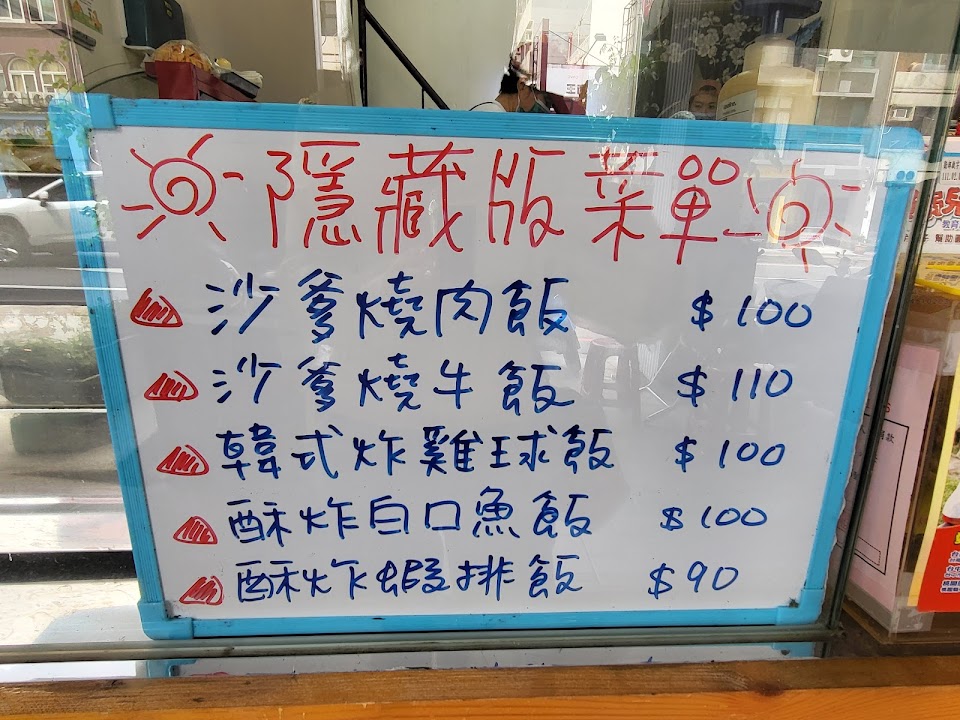 隱藏版菜單
沙爹燒肉飯 $100
沙爹燒牛飯 $110
韓式炸雞球飯 $100
酥炸白口魚飯 $100
酥炸蝦排飯 $90